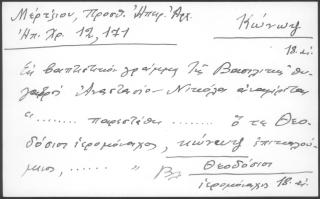 Μέρτζιου, Προσθ. Ἠπειρ. Ἀρχ.
Ἠπ. Χρ. 12, 171
Κώνωψ
18. αἰ.
Ἐκ βαπτιστικοῦ γράμμα τῆς Βασιλικῆς θυ-
γατρὸς Ἀναστασίου Νικόλα ἀναφέρεται
"...... παρεστάθη ...... ὁ τε Θεο-
δόσιος ἱερομόναχος, κώνωψ ἐπικαλού-
μενος, ...... " Βλ Θεοδόσιος
ἱερομόναχος 18. αἰ.